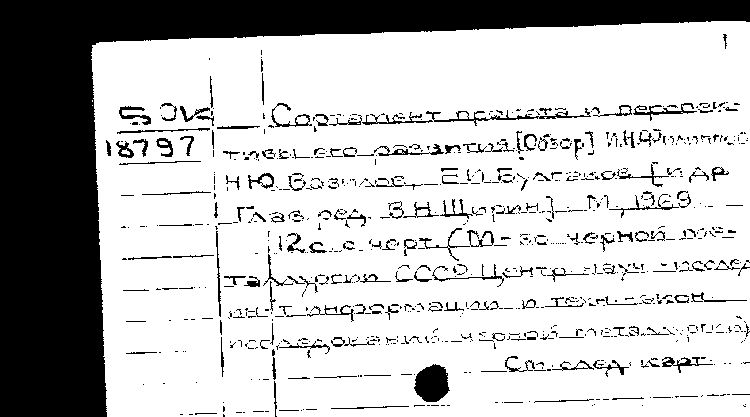 18797
Сортамент проката и перспек-
тивы его развития [Обзор] И.Н.Филиппов
Н Ю Возилов, Е И Булгаков [и др
Глав ред. В Н Щирин]. М, 1969
12 с. с черт. (М-во черной ме-
таллургии СССР Центр науч -исслед
ин-т информации и техн.-экон
исследований черной металлургии)
См. след. карт.